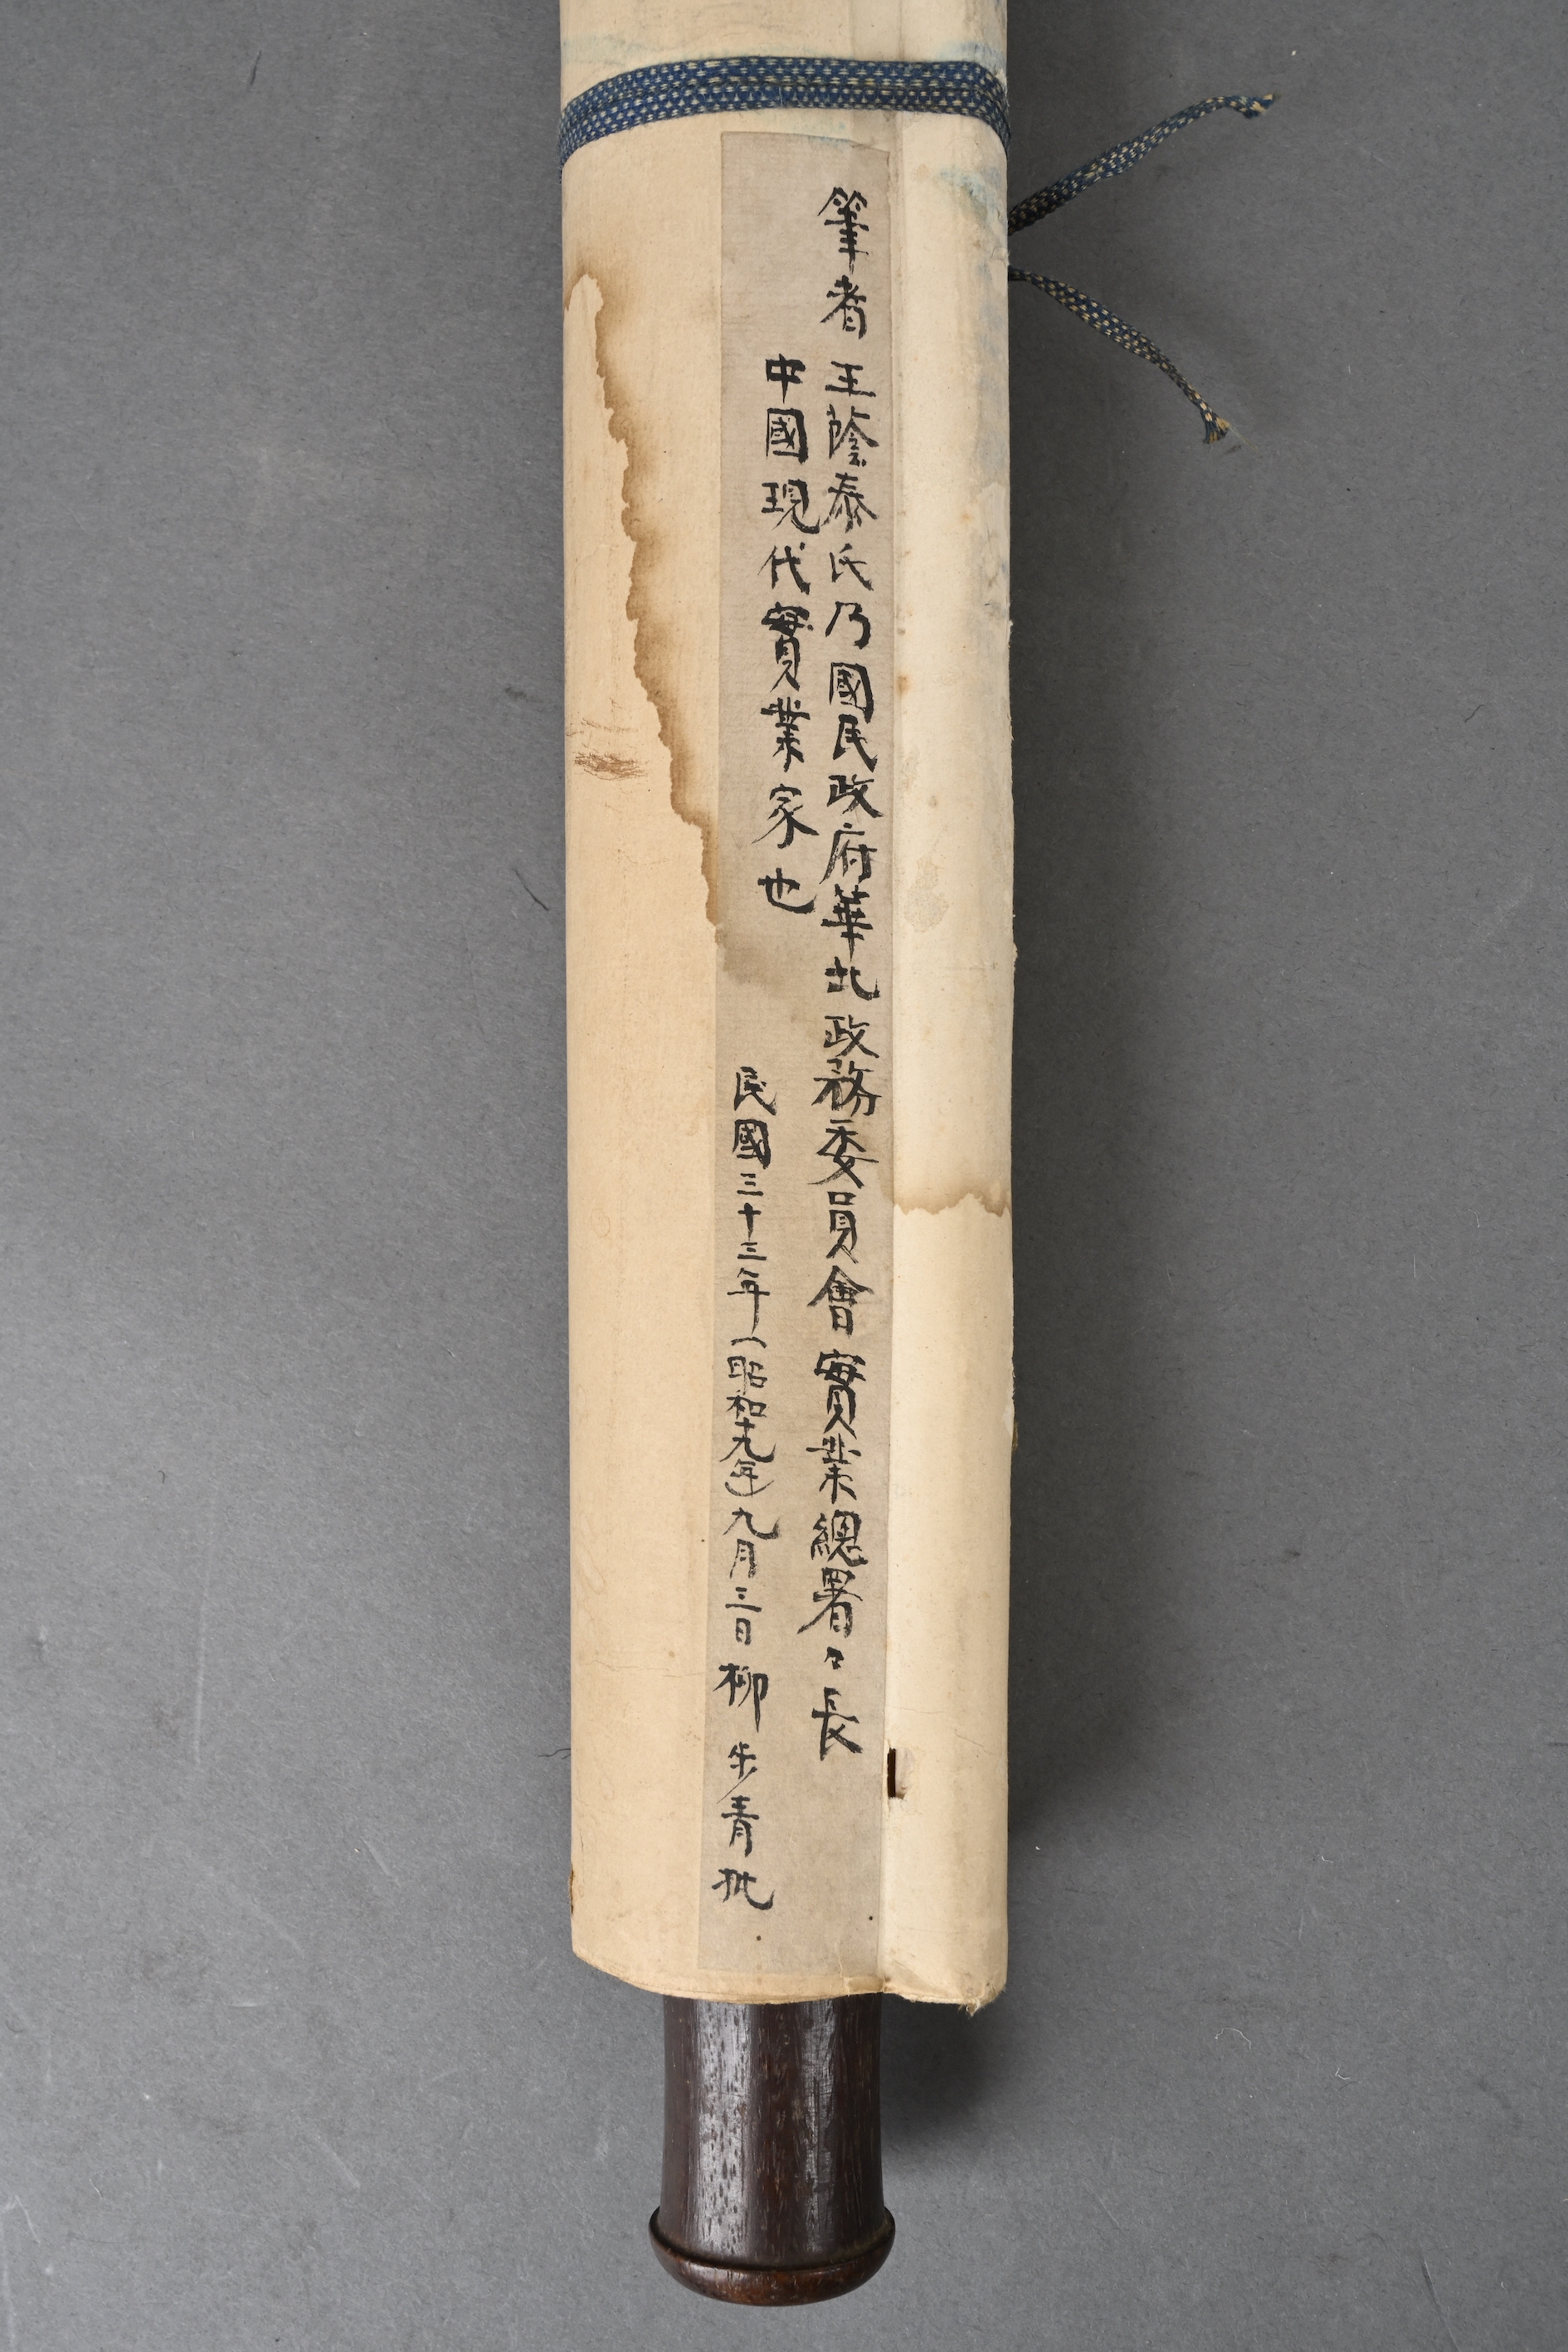 筆者 王蔭泰氏乃國民政府華北政務委員會實業總署々長
中國現代實業家也
民國三十三年(昭和十九年)九月三日 柳步青批